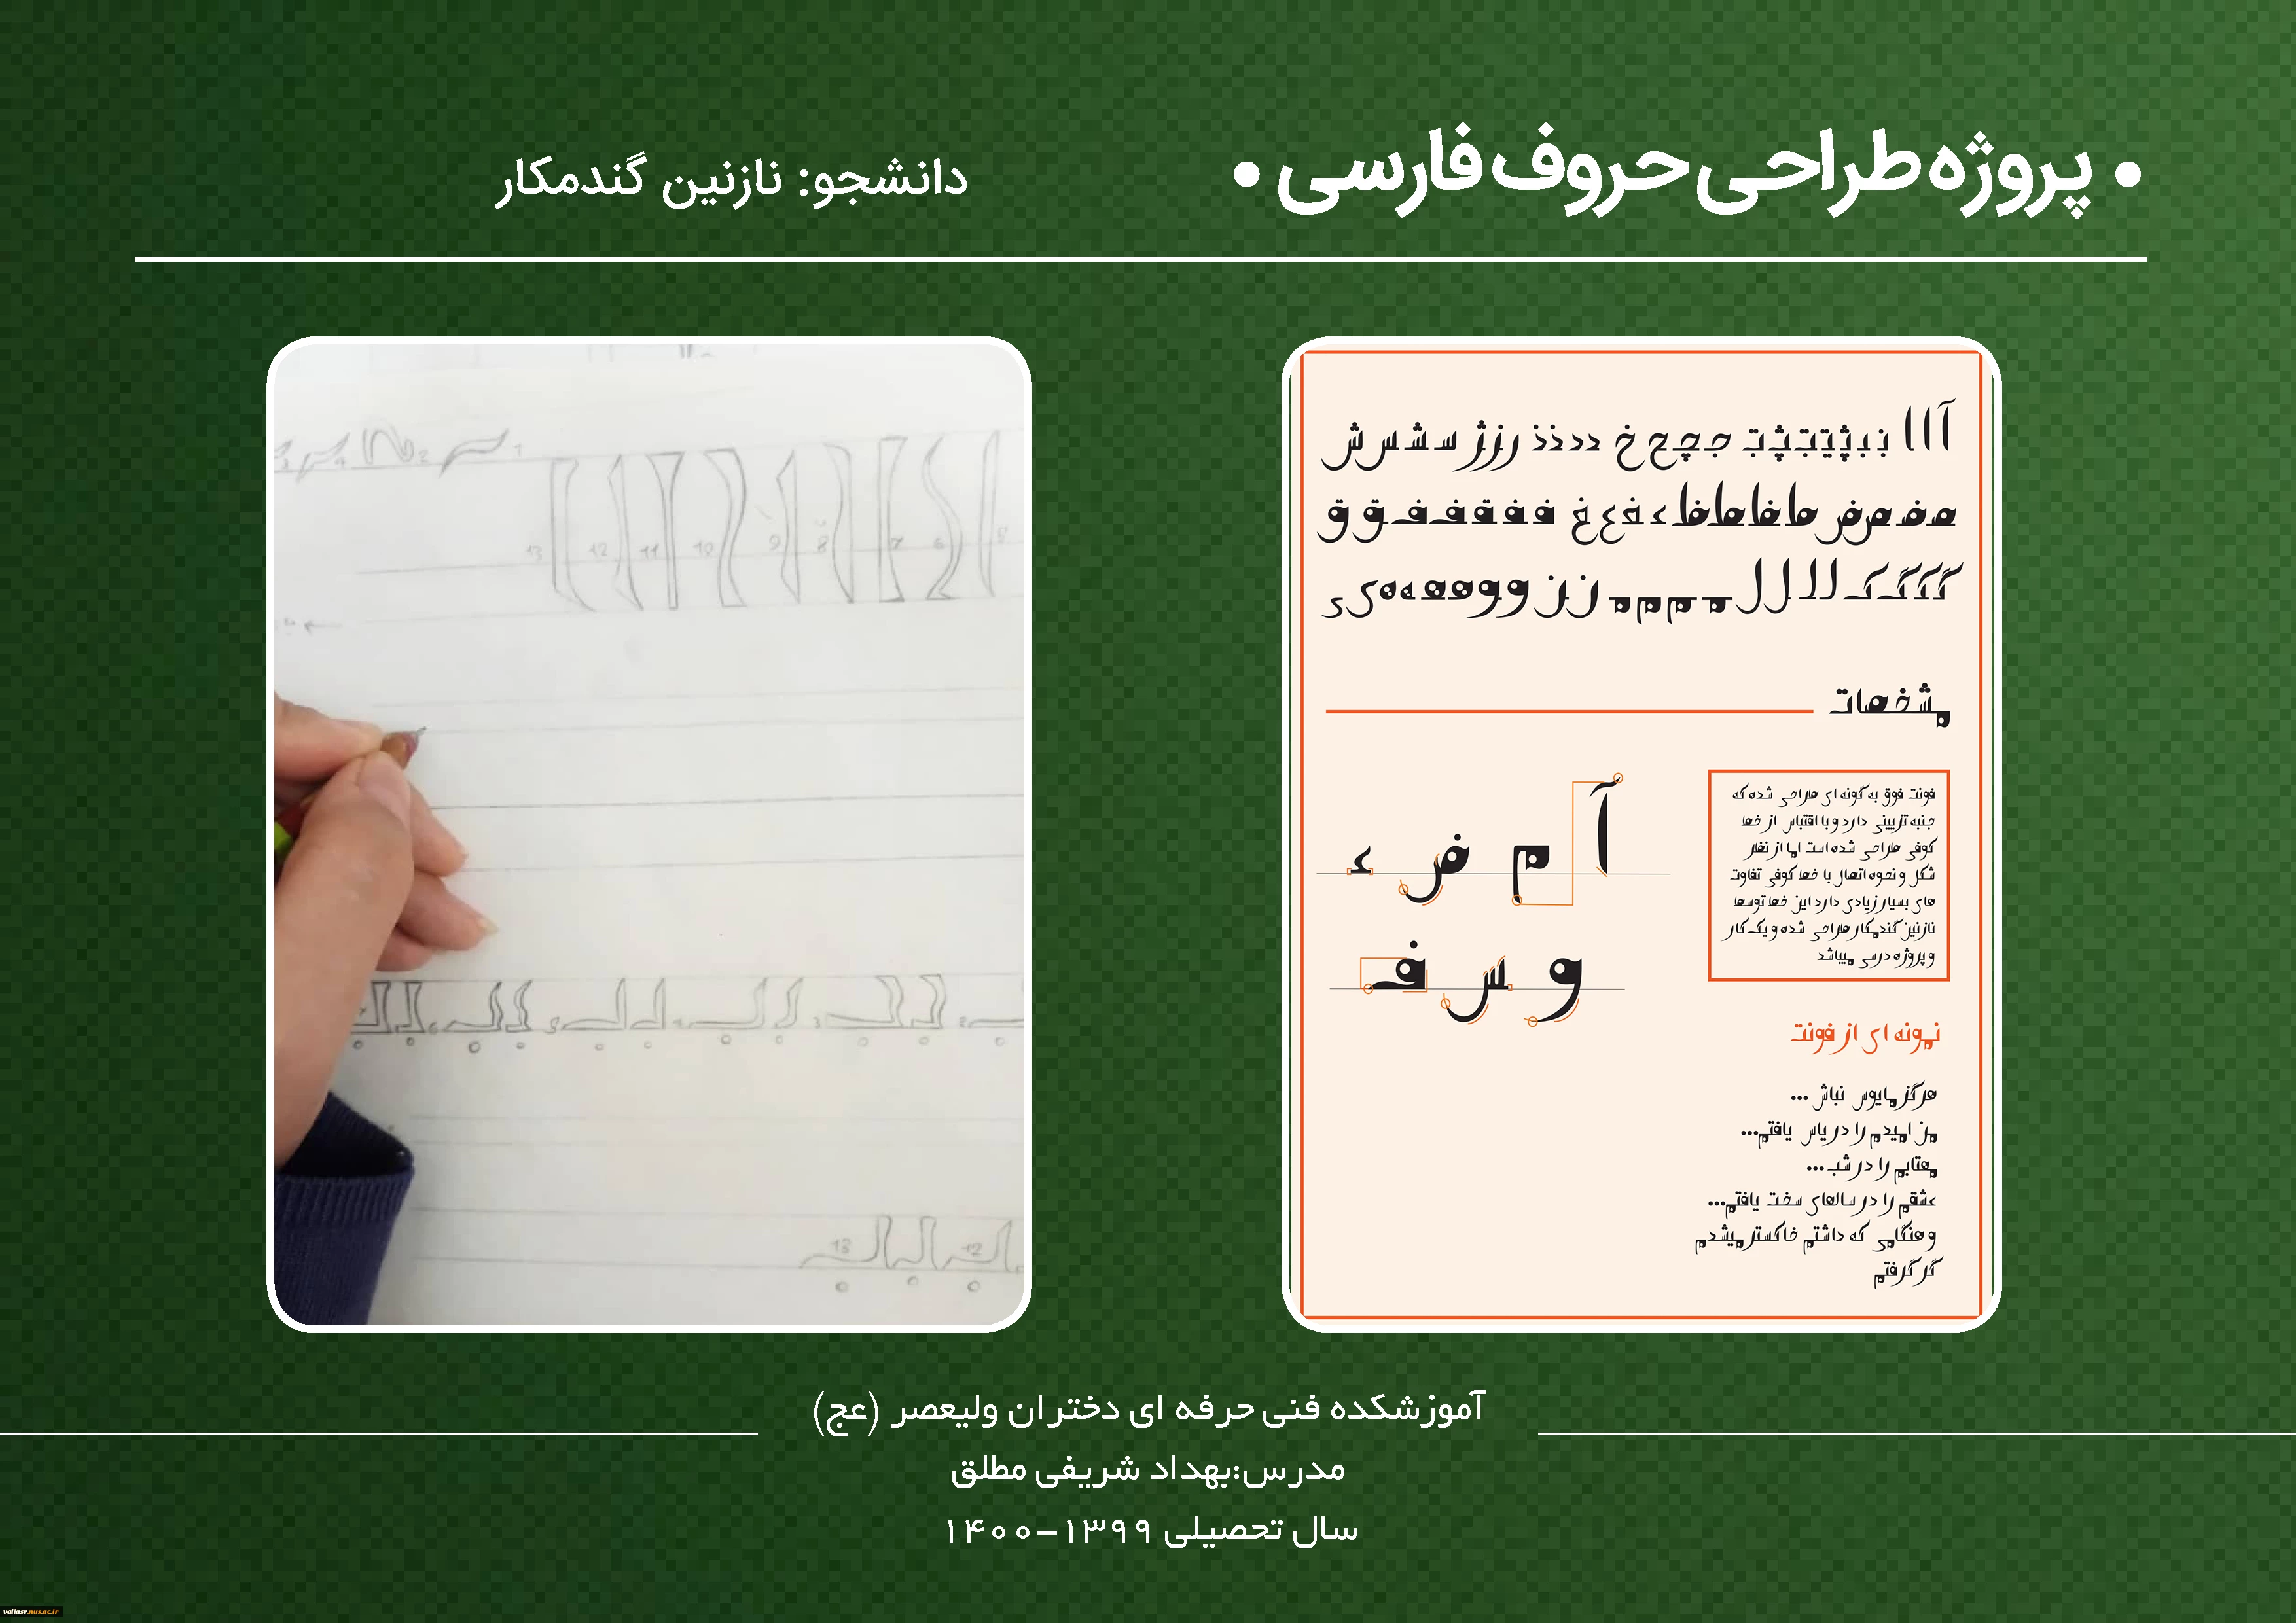 • پروژه طراحی حروف فارسی •
دانشجو: نازنین گندمکار
آ ا ا
مشخصات
فونت فوق به گونه ای طراحی شده که
جنبه تزیینی دارد و با اقتباس از خط
کوفی طراحی شده است اما از نظر
شکل و نحوه اتصال با خط کوفی تفاوت
های بسیار زیادی دارد این خط توسط
نازنین گندمکار طراحی شده و یک کار
و پروژه درسی میباشد
آ م ض ء
و س ف
نمونه ای از فونت
هرگز مایوس نباش ...
من امیدم را در یاس یافتم...
مهتابم را در شب...
عشقم را در سالهای سخت یافتم...
و هنگامی که داشتم خاکستر میشدم
گر گرفتم
1 2
13 12 11 10 9 8 7 6 5
13 12
آموزشکده فنی حرفه ای دختران ولیعصر (عج)
مدرس:بهداد شریفی مطلق
سال تحصیلی ۱۳۹۹-۱۴۰۰
valiasr.nus.ac.ir